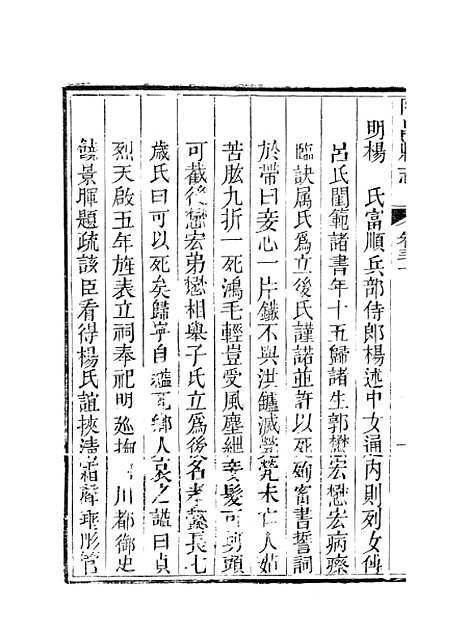 明楊　氏富順兵部侍郎楊述中女通內則列女傳
呂氏閨範諸書年十五歸諸生郭懋宏懋宏病瘵
臨訣属氏爲立後氏謹諾並許以死殉密書誓詞
於帶曰妾心一片鐵不與洪鑪滅煢煢未亡人姑
苦肱九折一死鴻毛輕豈受風塵絏妾髮可剪頭
可截後懋宏弟懋相舉子氏立爲後名孝懿長七
歲氏曰可以死矣歸寧自縊死鄉人哀之謚曰貞
烈天啟五年旌表立祠奉祀明廵撫　川都御史
饒景暉題疏該臣看得楊氏誼挾淸霜聲琲彤管